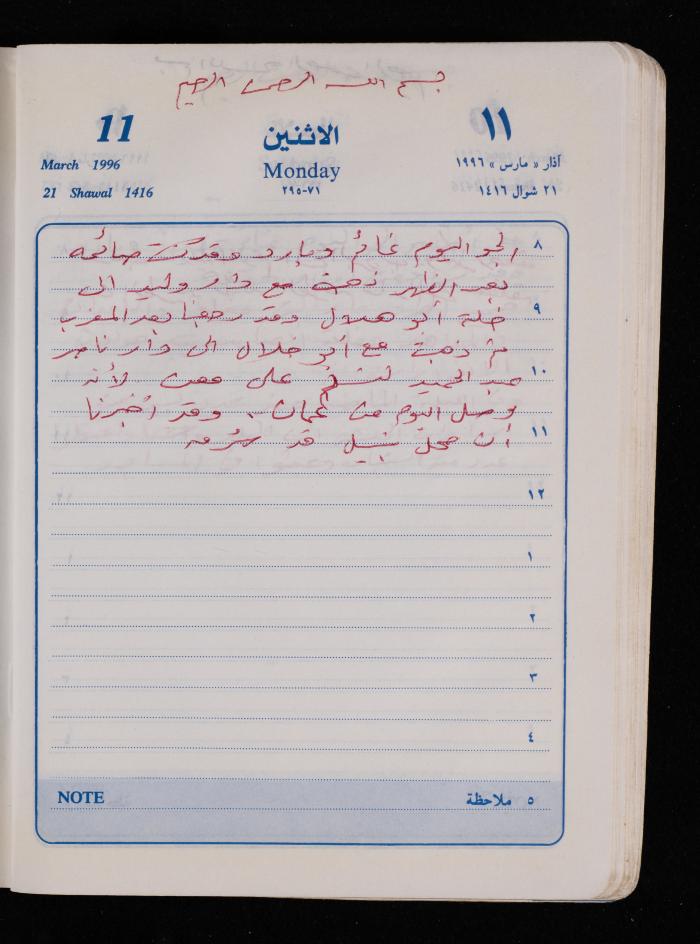 بسم الله الرحمن الرحيم
11 الاثنين ١١
March 1996 Monday آذار « مارس » ١٩٩٦
21 Shawal 1416 ٧١-٢٩٥ ٢١ شوال ١٤١٦
٨ الجو اليوم غائم وبارد وقد كنت صائمه
بعد الظهر ذهبت مع دار وليد الى
٩ خلة أبو هلال وقد رجعنا بعد المغرب
ثم ذهبت مع أبو خلال الى دار ناصر
١٠ عبد الحميد لنسلم على لأنه
وصل اليوم من عمان . وقد أخبرنا
١١ أن محل نبيل قد
١٢
١
٢
٣
٤
NOTE ٥ ملاحظة